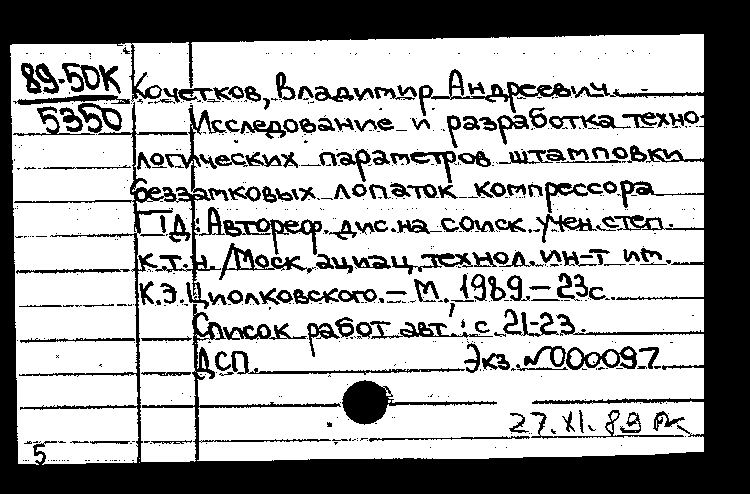 89-50К Кочетков, Владимир Андреевич.
5350 Исследование и разработка техно-
логических параметров штамповки
беззамковых лопаток компрессора
ГТД: Автореф. дис. на соиск. учен. степ.
к.т.н. /Моск. ациац. технол. ин-т им.
К.Э. Циолковского. – М. 1989. – 23с
Список работ авт.: с. 21-23.
ДСП. Экз. №000097.
27.XI.89
5